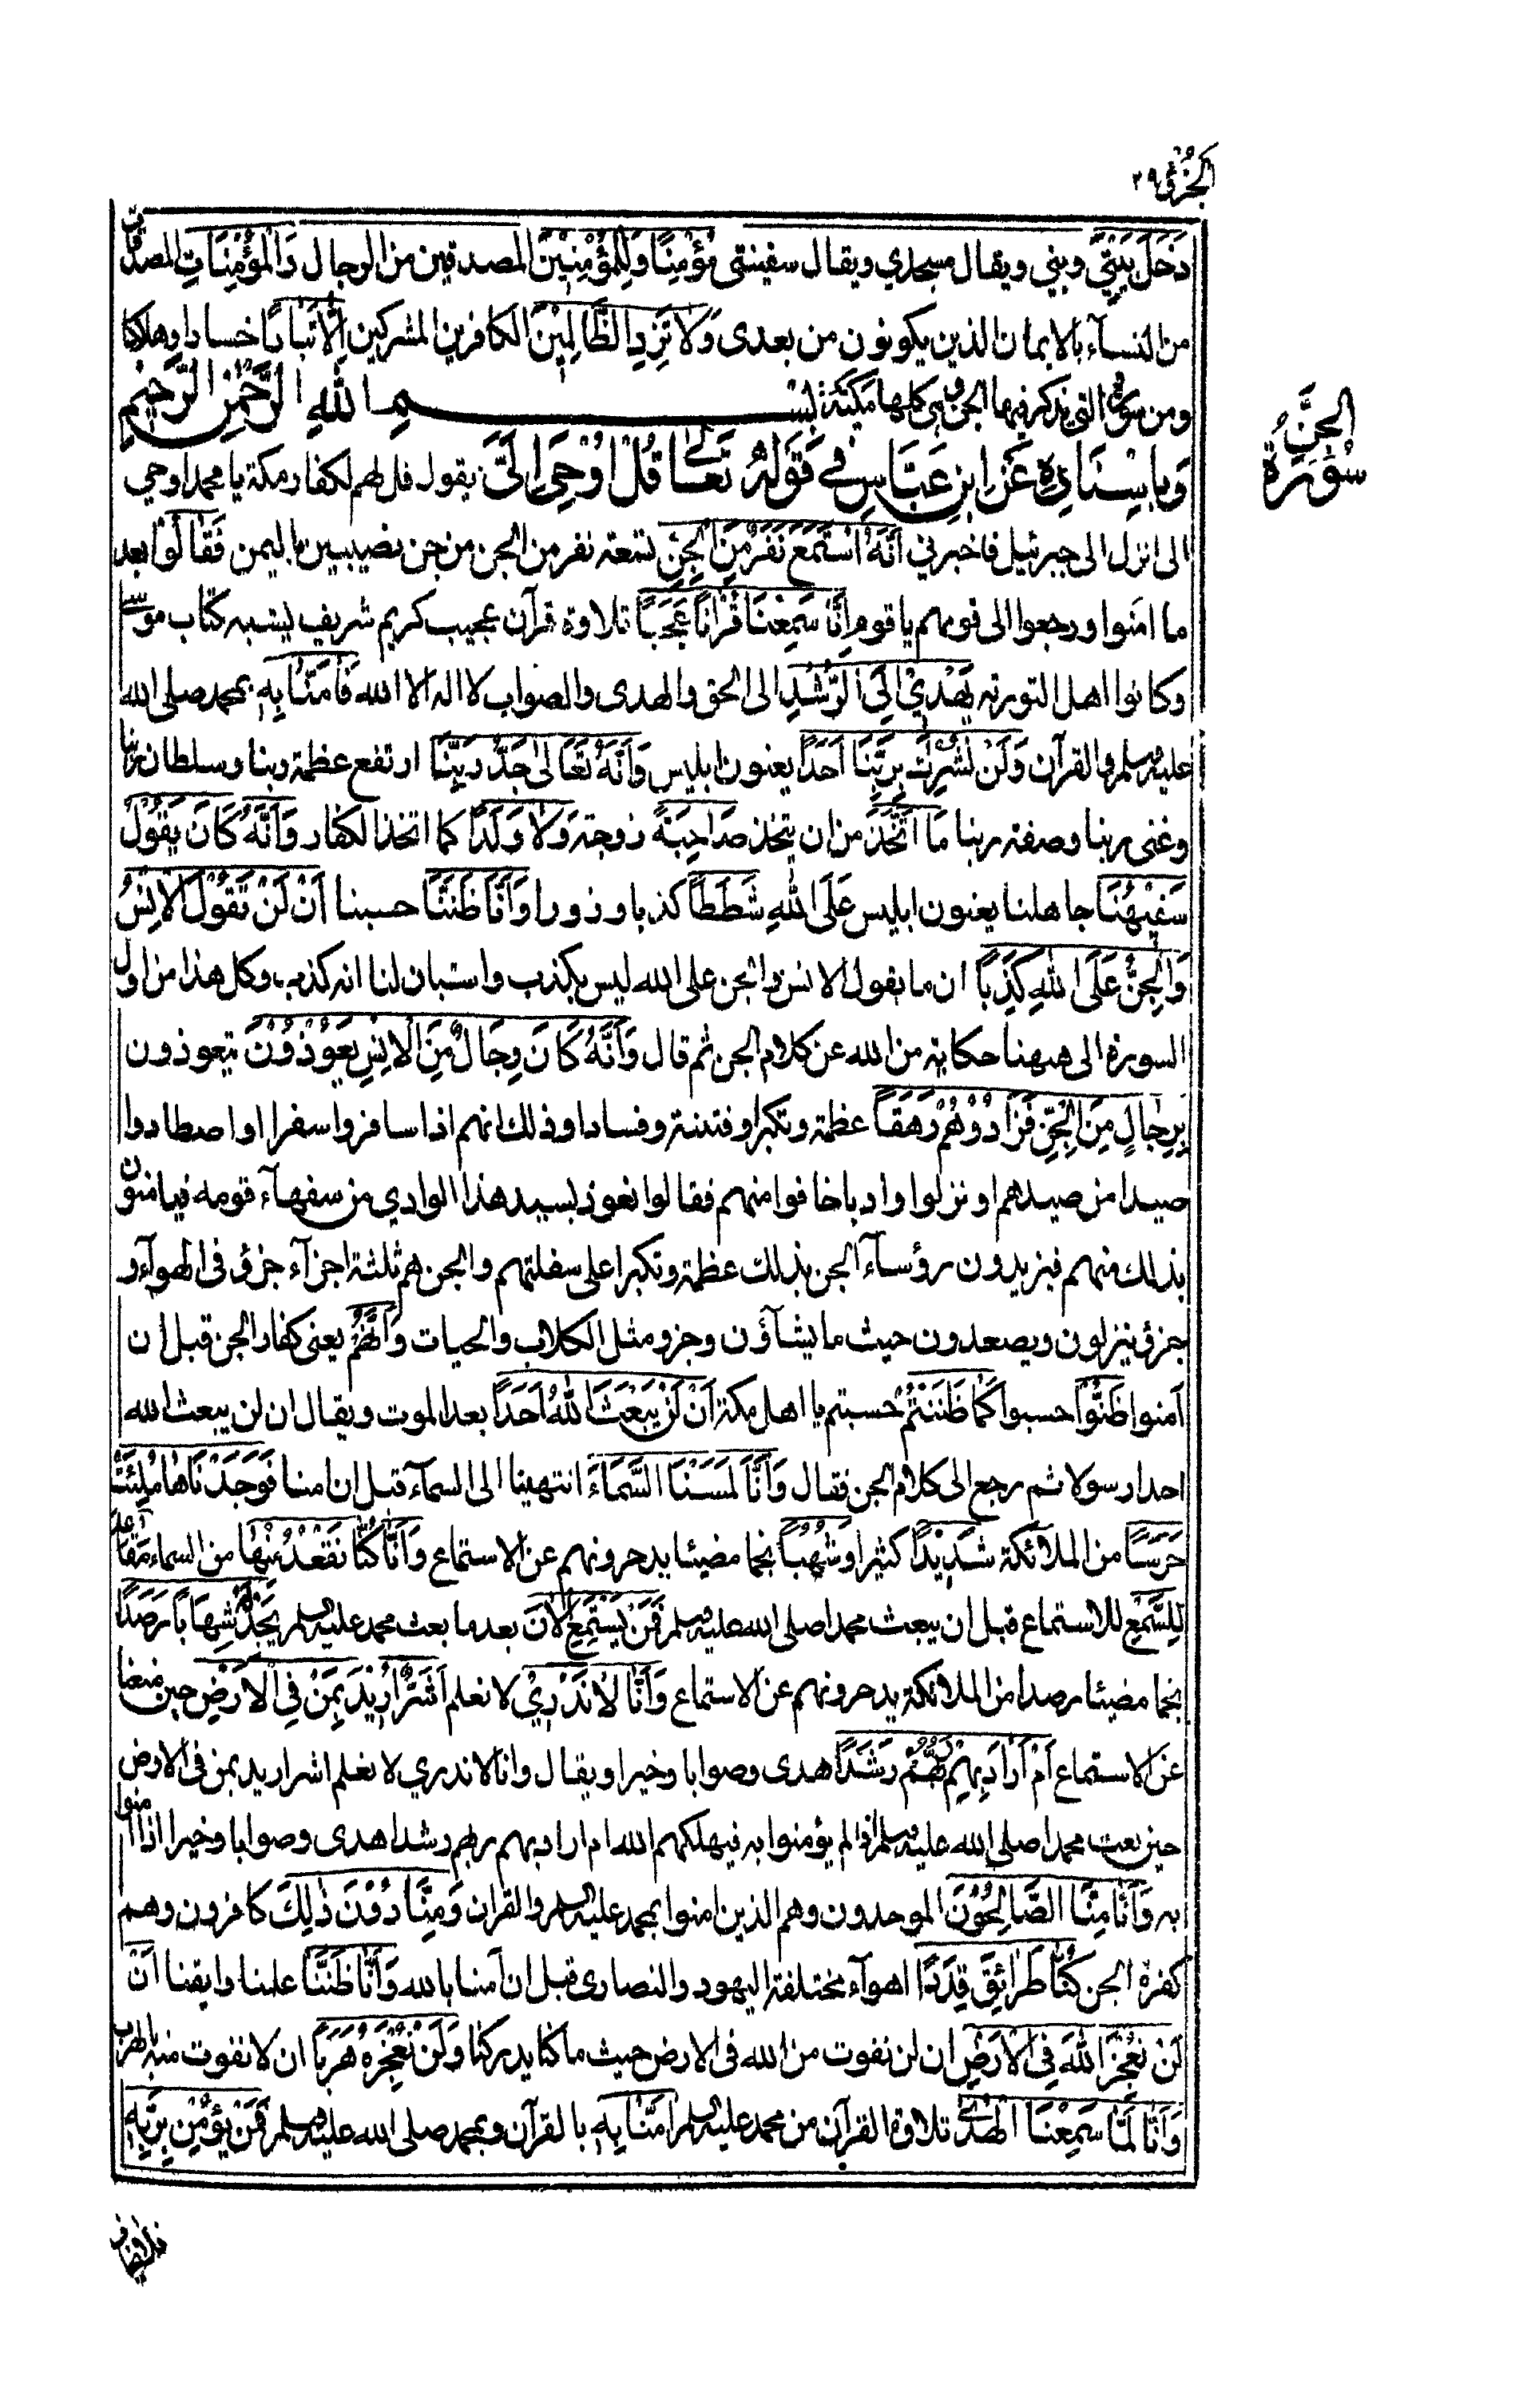 الجزؤ ٢٩
دَخَلَ بَيْتِيَ ديني ويقال مسجدي ويقال سفينتى مُؤْمِنًا وَلِلْمُؤْمِنِيْنَ المصدقين من الرجال وَالْمُؤْمِنَاتِ المصدقات
من النسآء بالايمان الذين يكونون من بعدى وَلَا تَزِدِ الظَّالِمِيْنَ الكافرين المشركين إِلَّا تَبَارًا خسارا وهلاكا
ومن سورة التى يذكر فيها الجن وهى كلها مكية بِسْمِ اللهِ الرَّحْمٰنِ الرَّحِيْمِ
الجن سورة
وَبِاِسْنَادِهٖ عَنِ ابْنِ عَبَّاسٍ فِي قَوْلِهٖ تَعَالٰى قُلْ اُوْحِيَ اِلَيَّ يقول قل لهم لكفار مكة يا محمد اوحي
الى انزل الى جبرئيل فاخبرني اَنَّهُ اسْتَمَعَ نَفَرٌ مِّنَ الْجِنِّ تسعة نفر من الجن من جن نصيبين باليمن فَقَالُوْا بعد
ما امنوا ورجعوا الى قومهم يا قوم اِنَّا سَمِعْنَا قُرْاٰنًا عَجَبًا تلاوة قرآن عجيب كريم شريف يشبه كتاب موسى
وكانوا اهل التورية يَهْدِيْ اِلَى الرُّشْدِ الى الحق والهدى والصواب لا اله الا الله فَاٰمَنَّا بِهٖ بمحمد صلى الله
عليه وسلم والقرآن وَلَنْ نُشْرِكَ بِرَبِّنَا اَحَدًا يعنون ابليس وَاَنَّهٗ تَعَالٰى جَدُّ رَبِّنَا ارتفع عظمة ربنا وسلطان ربنا
وغنى ربنا وصفة ربنا مَا اتَّخَذَ من ان يتخذ صَاحِبَةً زوجة وَلَا وَلَدًا كما اتخذ الكفار وَاَنَّهٗ كَانَ يَقُوْلُ
سَفِيْهُنَا جاهلنا يعنون ابليس عَلَى اللهِ شَطَطًا كذبا وزورا وَاَنَّا ظَنَنَّا حسبنا اَنْ لَنْ تَقُوْلَ الْاِنْسُ
وَالْجِنُّ عَلَى اللهِ كَذِبًا ان ما يقول الانس والجن على الله ليس بكذب واستبان لنا انه كذب وكل هذا من اول
السورة الى ههنا حكاية من الله عن كلام الجن ثم قال وَاَنَّهٗ كَانَ رِجَالٌ مِّنَ الْاِنْسِ يَعُوْذُوْنَ يتعوذون
بِرِجَالٍ مِّنَ الْجِنِّ فَزَادُوْهُمْ رَهَقًا عظمة وتكبرا وفتنة وفسادا وذلك انهم اذا سافروا سفرا او اصطادوا
صيدا من صيدهم او نزلوا واديا خافوا منهم فقالوا نعوذ بسيد هذا الوادي من سفهآء قومه فيامنون
بذلك منهم فيزيدون رؤسآء الجن بذلك عظمة وتكبرا على سفلتهم والجن هم ثلثة اجزآء جزؤ فى الهوآء و
جزؤ ينزلون ويصعدون حيث ما يشآؤن وجزو مثل الكلاب والحيات وَاَنَّهُمْ يعنى كفار الجن قبل ان
آمنوا ظَنُّوْا حسبوا كَمَا ظَنَنْتُمْ حسبتم يا اهل مكة اَنْ لَنْ يَبْعَثَ اللهُ اَحَدًا بعد الموت ويقال ان لن يبعث الله
احدا رسولا ثم رجع الى كلام الجن فقال وَاَنَّا لَمَسْنَا السَّمَآءَ انتهينا الى السمآء قبل ان امنا فَوَجَدْنَاهَا مُلِئَتْ
حَرَسًا من الملائكة شَدِيْدًا كثيرا وَشُهُبًا نجما مضيئا يدحرونهم عن الاستماع وَاَنَّا كُنَّا نَقْعُدُ مِنْهَا من السماء مَقَاعِدَ
لِلسَّمْعِ للاستماع قبل ان يبعث محمدا صلى الله عليه وسلم فَمَنْ يَّسْتَمِعِ الْاٰنَ بعد ما بعث محمد عليه السلم يَجِدْ لَهٗ شِهَابًا رَّصَدًا
نجما مضيئا رصدا من الملائكة يدحرونهم عن الاستماع وَاَنَّا لَا نَدْرِيْ لا نعلم اَشَرٌّ اُرِيْدَ بِمَنْ فِي الْاَرْضِ حين منعنا
عن الاستماع اَمْ اَرَادَ بِهِمْ رَبُّهُمْ رَشَدًا هدى وصوابا وخيرا ويقال وانا لا ندري لا نعلم اشر اريد بمن فى الارض
حين بعث محمدا صلى الله عليه وسلم اذا لم يؤمنوا به فيهلكهم الله ام اراد بهم ربهم رشدا هدى وصوابا وخيرا اذا امنوا
به وَاَنَّا مِنَّا الصَّالِحُوْنَ الموحدون وهم الذين امنوا بمحمد عليه السلم والقران وَمِنَّا دُوْنَ ذٰلِكَ كافرون وهم
كفرة الجن كُنَّا طَرَائِقَ قِدَدًا اهوآء مختلفة اليهود والنصارى قبل ان آمنا بالله وَاَنَّا ظَنَنَّا علمنا وايقنا اَنْ
لَنْ نُعْجِزَ اللهَ فِي الْاَرْضِ ان لن نفوت من الله فى الارض حيث ما كنا يدركنا وَلَنْ نُعْجِزَهٗ هَرَبًا ان لا نفوت منه بالهرب
وَاَنَّا لَمَّا سَمِعْنَا الْهُدٰى تلاوة القرآن من محمد عليه السلم اٰمَنَّا بِهٖ بالقرآن وبمحمد صلى الله عليه وسلم فَمَنْ يُؤْمِنْ بِرَبِّهٖ
فلا يخاف